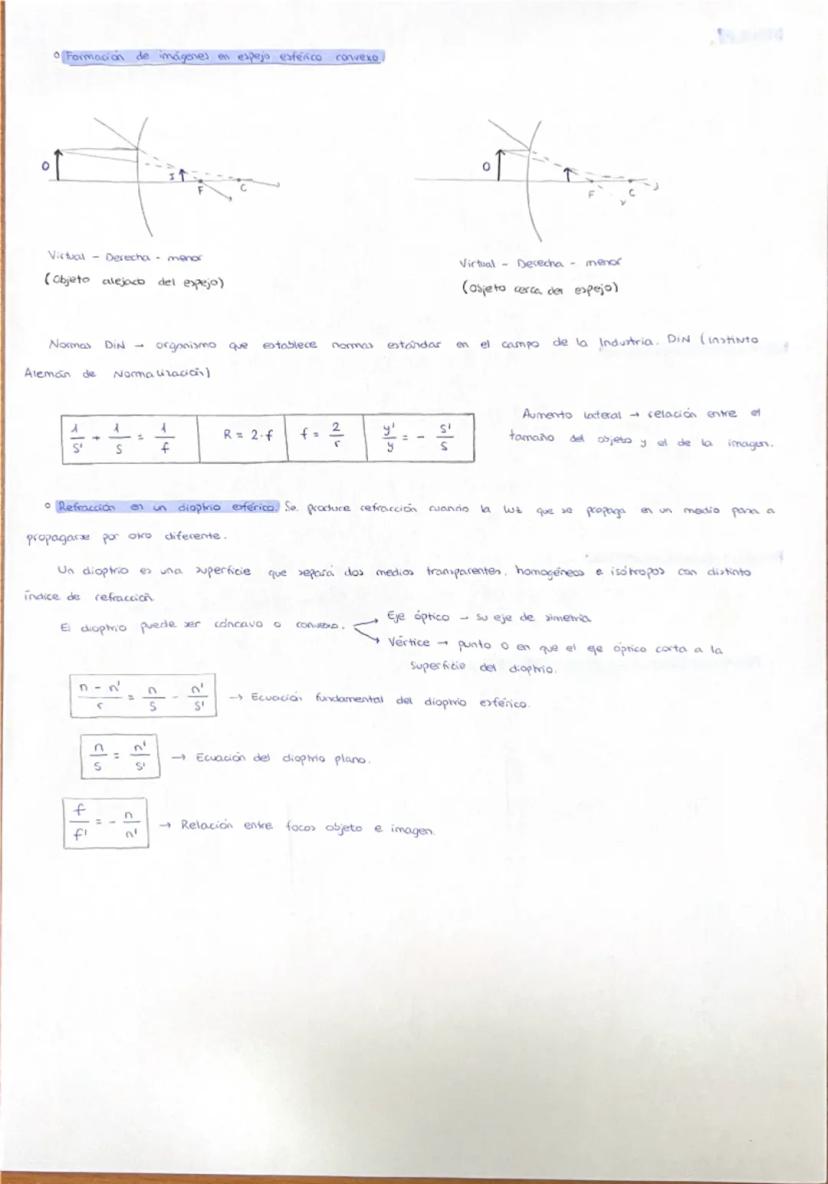 o Formación de imágenes en espejo esférico convexo.
O I F C
O F C
Virtual - Derecha - menor
(Objeto alejado del espejo)
Virtual - Derecha - menor
(Objeto cerca del espejo)
Normas DIN → organismo que establece normas estándar en el campo de la Industria. DIN (instituto
Alemán de Normalización)
1/s' + 1/s = 1/f
R = 2·f
f = 2/r
y'/y = - s'/s
Aumento lateral → relación entre el
tamaño del objeto y el de la imagen.
o Refracción en un dioptrio esférico. Se produce refracción cuando la luz que se propaga en un medio pasa a
propagarse por otro diferente.
Un dioptrio es una superficie que separa dos medios transparentes, homogéneos e isótropos con distinto
índice de refracción
El dioptrio puede ser cóncavo o convexo.
→ Eje óptico → su eje de simetría
→ Vértice → punto O en que el eje óptico corta a la
superficie del dioptrio.
n - n'/r = n/s - n'/s' → Ecuación fundamental del dioptrio esférico.
n/s = n'/s' → Ecuación del dioptrio plano.
f/f' = - n/n' → Relación entre focos objeto e imagen.